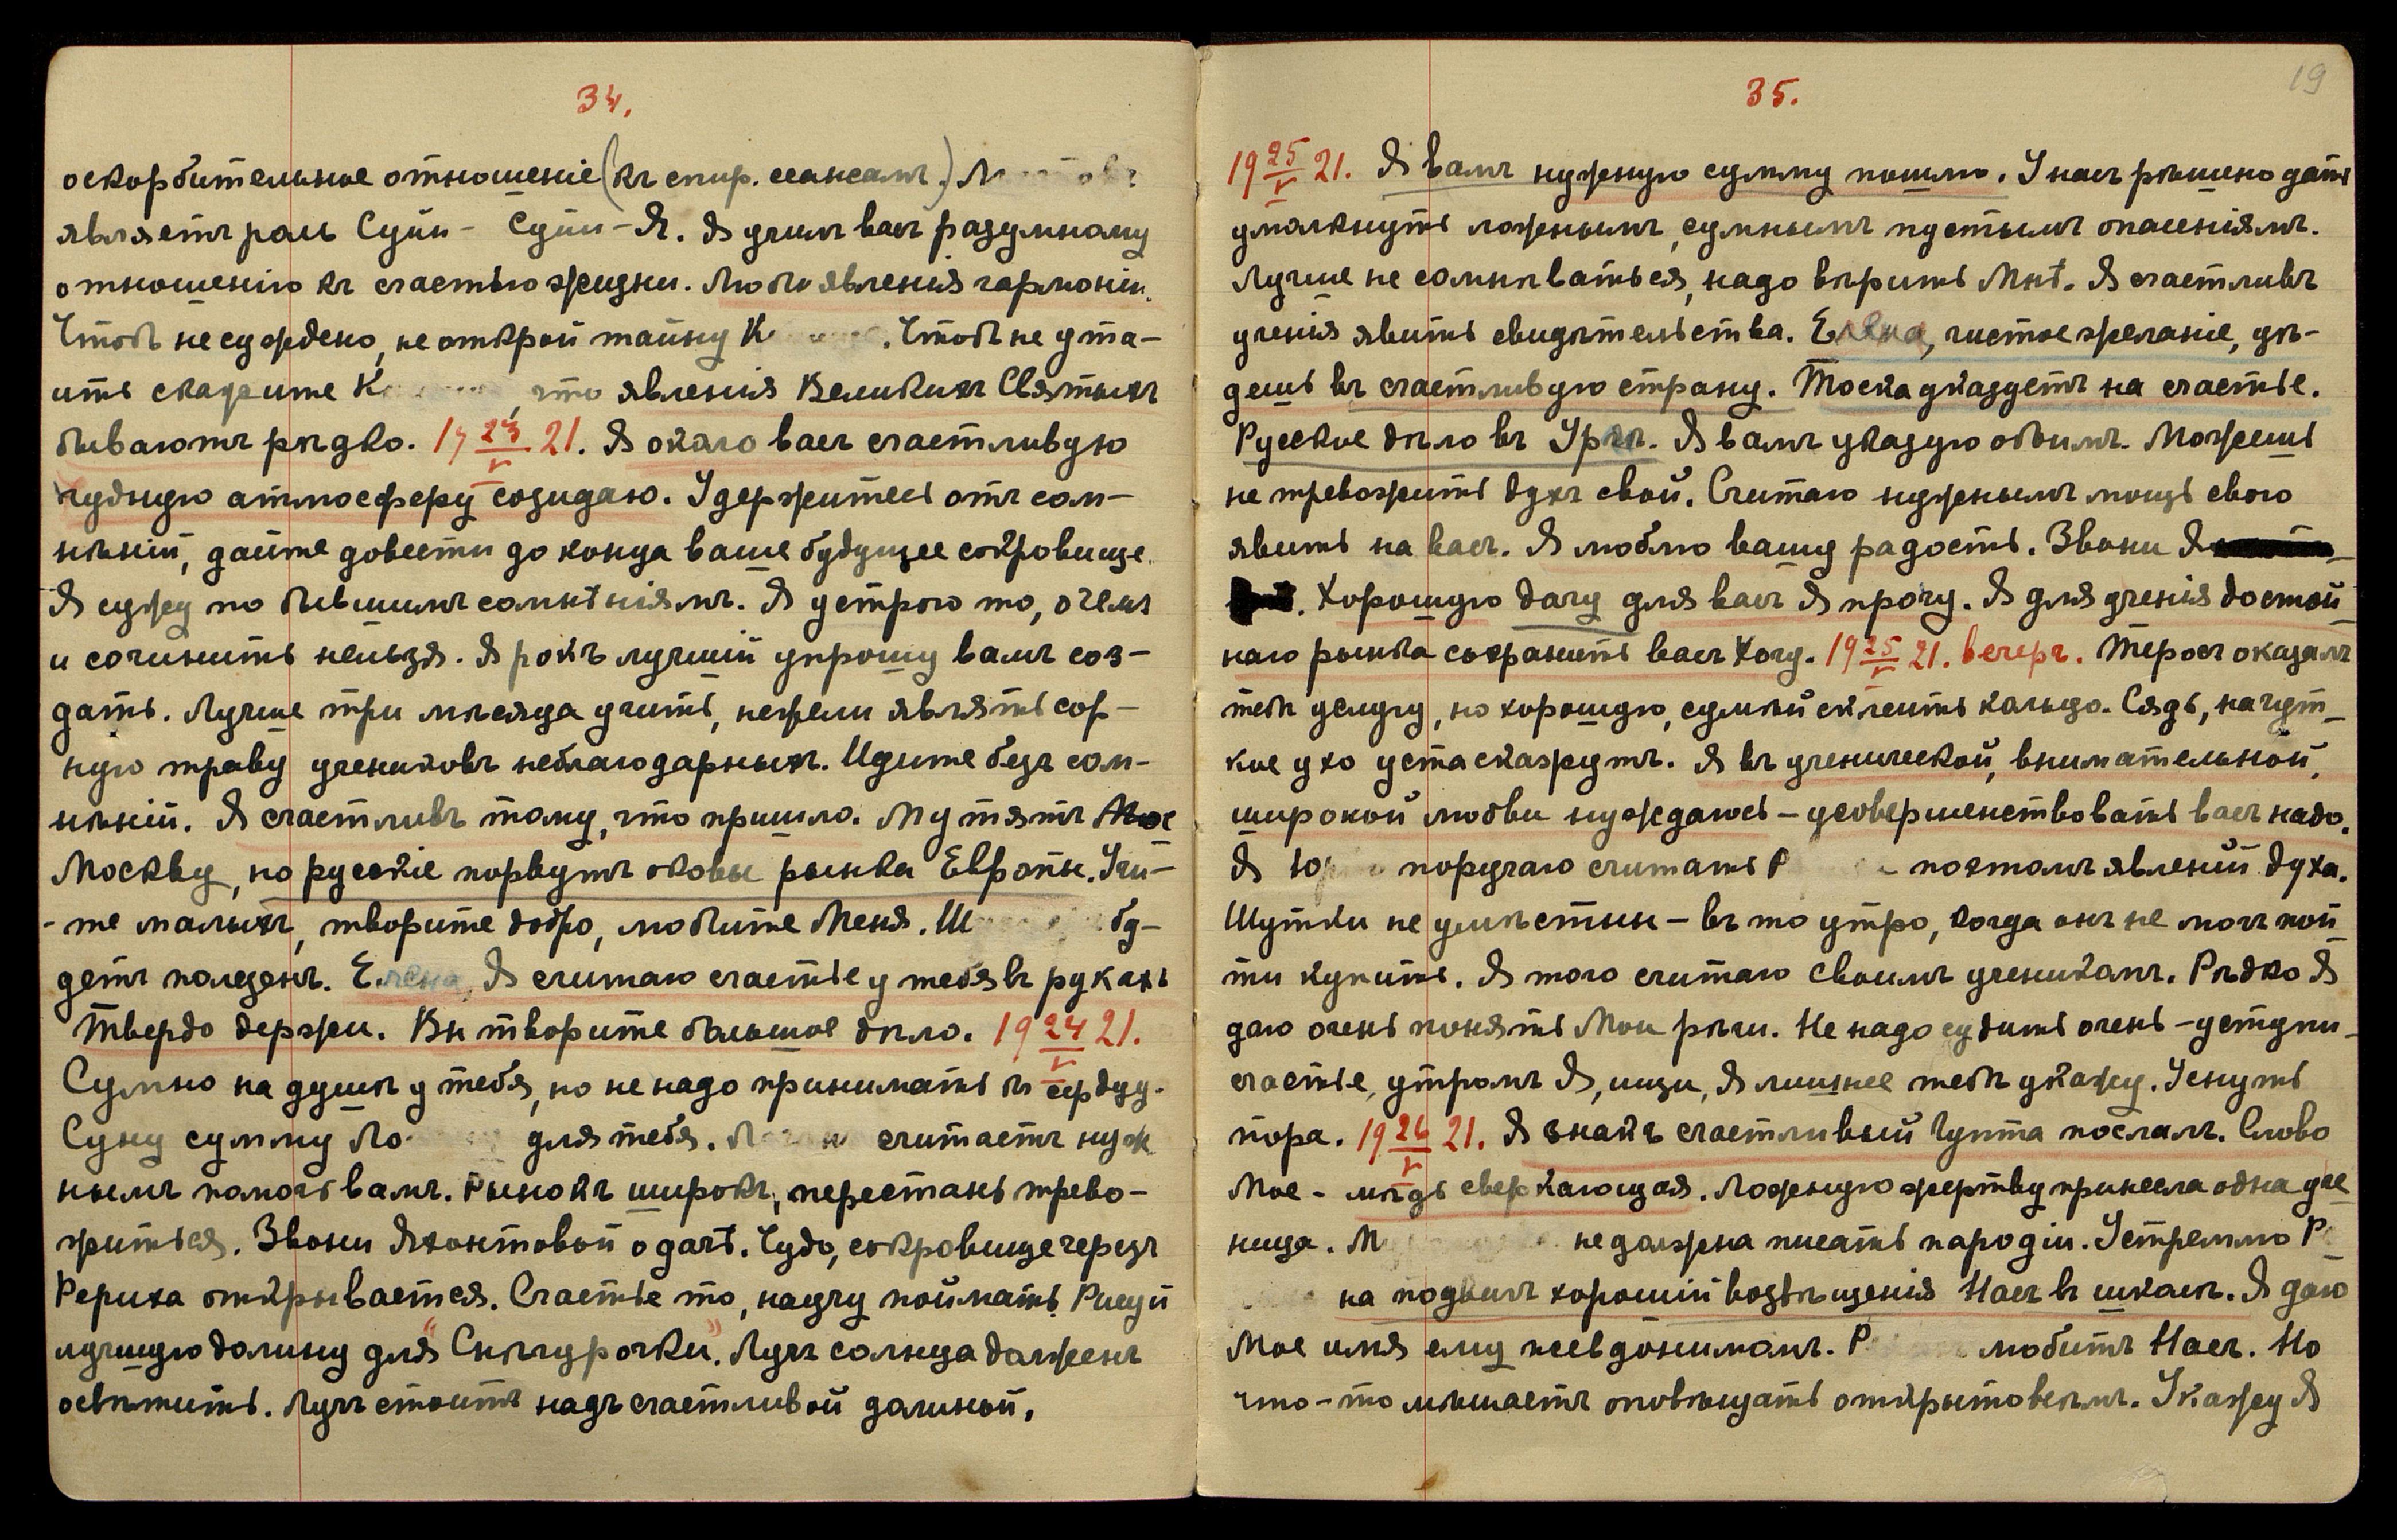 34.
оскорбительное отношеніе (къ спир. сеансамъ.)
являетъ роль Суйи- Суйи-Я. Я училъ васъ разумному
отношенію къ счастью жизни. Люблю явленія гармоніи.
Чтобъ не суждено, не открой тайну К . Чтобъ не ута-
ить скажите К , что явленія Великихъ Святыхъ
бываютъ рѣдко. 19 23/V 21. Я около васъ счастливую
чудную атмосферу созидаю. Удержитесь отъ сом-
нѣній, дайте довести до конца ваше будущее сокровище.
Я сужу по бывшимъ сомнѣніямъ. Я устрою то, о чемъ
и сочинить нельзя. Я рокъ лучшій упрошу вамъ соз-
дать. Лучше три мѣсяца учить, нежели являть сор-
ную траву учениковъ неблагодарныхъ. Идите безъ сом-
нѣній. Я счастливъ тому, что пришло. Мутятъ
Москву, но русскіе порвутъ оковы рынка Европы. Учи-
-те малыхъ, творите добро, любите Меня. Ш бу-
детъ полезенъ. Елена, Я считаю счастье у тебя въ рукахъ
Твердо держи. Вы творите большое дѣло. 19 24/V 21.
Сумно на душѣ у тебя, но не надо принимать къ сердцу.
Суну сумму Ло для тебя. считаетъ нуж
нымъ помочь вамъ. Рынокъ широкъ, перестань трево-
житься. Звони Яхонтовой о дачѣ. Чудо, сокровище черезъ
Рериха открывается. Счастье то, научу поймать. Рисуй
лучшую долину для "Снѣгурочки". Лучъ солнца долженъ
освѣтить. Лучъ стоитъ надъ счастливой долиной,
35.
19
19 25/V 21. Я вамъ нужную сумму пошлю. У насъ рѣшено дать
умолкнуть ложнымъ, сумнымъ пустымъ опасеніямъ.
Лучше не сомнѣваться, надо вѣрить Мнѣ. Я счастливъ
ученія явить свидѣтельства. Елена, чистое желаніе, уѣ-
дешь въ счастливую страну. Тоска указуетъ на счастье.
Русское дѣло въ Ургѣ. Я вамъ указую обоимъ. Можешь
не тревожить духъ свой. Считаю нужнымъ мощь свою
явить на васъ. Я люблю вашу радость. Звони Я
. Хорошую дачу для васъ Я прочу. Я для ученія достой
наго рынка сохранить васъ хочу. 19 25/V 21. вечеръ. Теросъ оказалъ
тебѣ услугу, но хорошую, сумѣй склеить кольцо. Сядь, на чут_
кое ухо уста скажутъ. Я въ ученической, внимательной,
широкой любви нуждаюсь – усовершенствовать васъ надо.
Я Ю поручаю считать Р поэтомъ явленій духа.
Шутки не умѣстны – въ то утро, когда онъ не могъ пой_
ти купить. Я того считаю Своимъ ученикомъ. Рѣдко Я
даю очень понять Мои рѣчи. Не надо судить очень – уступи_
счастье, утромъ Я, ищи, Я лишнее тебѣ укажу. Уснуть
пора. 19 26/V 21. Я знакъ счастливый Чупта послалъ. Слово
Мое - мѣдь сверкающая. Ложную жертву принесла одна уче
ница. М не должна писать пародіи. Устремлю Р
на подвигъ хорошій возвѣщенія Насъ въ школѣ. Я даю
Мое имя ему псевдонимомъ. Р любитъ Насъ. Но
что-то мѣшаетъ оповѣщать открыто всѣмъ. Укажу Я